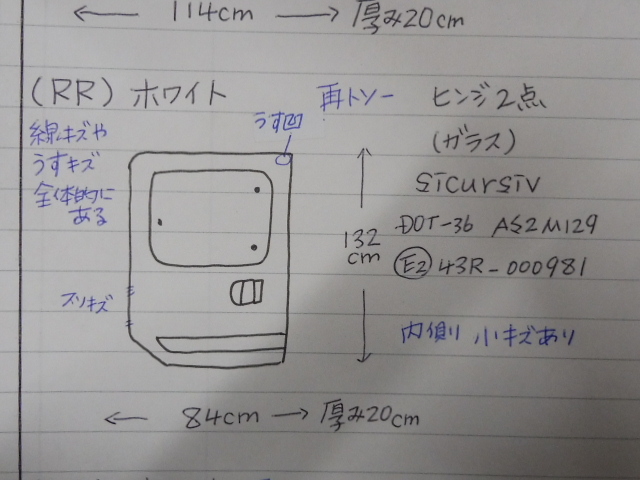 ← 114cm → 厚み20cm
(RR) ホワイト 再トソー ヒンジ2点
線キズや
うすキズ
全体的に
ある
うす凹
(ガラス)
sicursiv
DOT-36 AS2 M129
E2 43R-000981
132
cm
スリキズ
内側り 小キズあり
← 84cm → 厚み20cm